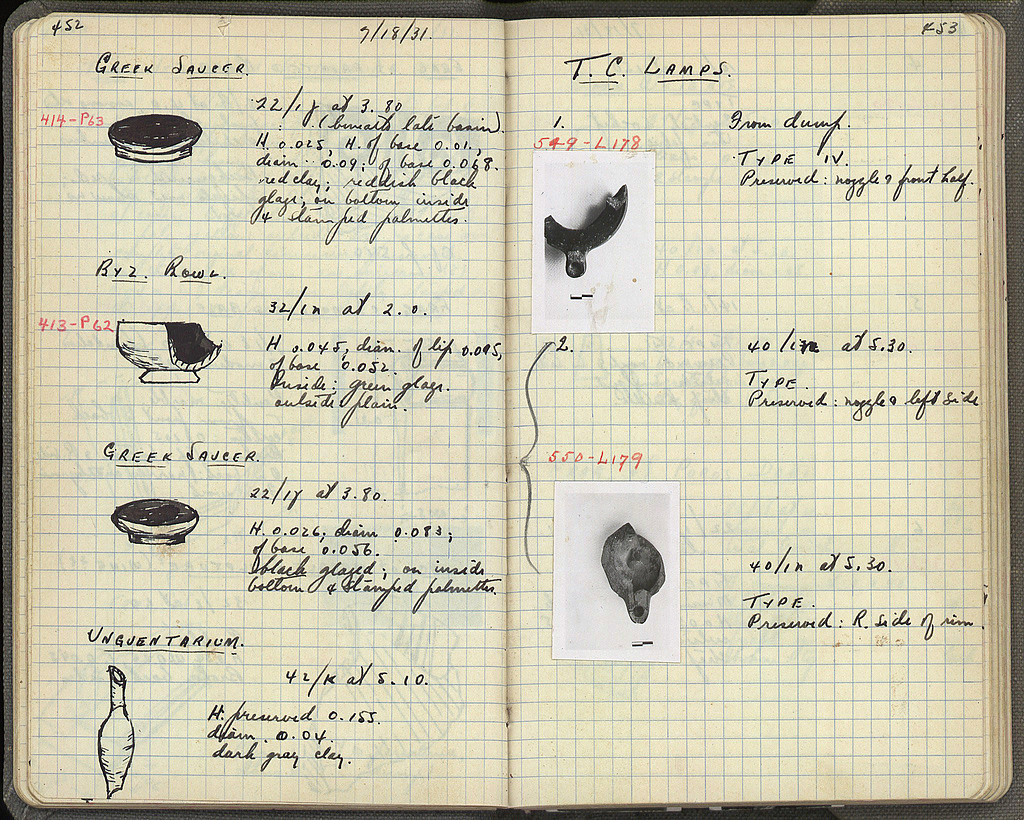 452
7/18/31
GREEK SAUCER.
414-P63
22/ at 3.80
(beneath late basin).
H. 0.025, H. of base 0.01,
diam. 0.09; of base 0.068.
red clay; reddish black
glaze; on bottom inside
4 stamped palmettes.
BYZ. BOWL.
413-P62
32/ at 2.0.
H 0.045, diam. of lip 0.095,
of base 0.052.
Inside: green glaze.
outside plain.
GREEK SAUCER.
22/ at 3.80.
H. 0.026; diam 0.083;
of base 0.056.
black glazed; on inside
bottom 4 stamped palmettes.
UNGUENTARIUM.
42/K at 5.10.
H. preserved 0.155.
diam. 0.04.
dark gray clay.
453
T. C. LAMPS.
1.
From dump.
549-L178
TYPE IV.
Preserved: nozzle & front half.
2.
40/ at 5.30.
TYPE.
Preserved: nozzle & left side
550-L179
40/ at 5.30.
TYPE.
Preserved: R. side of rim.